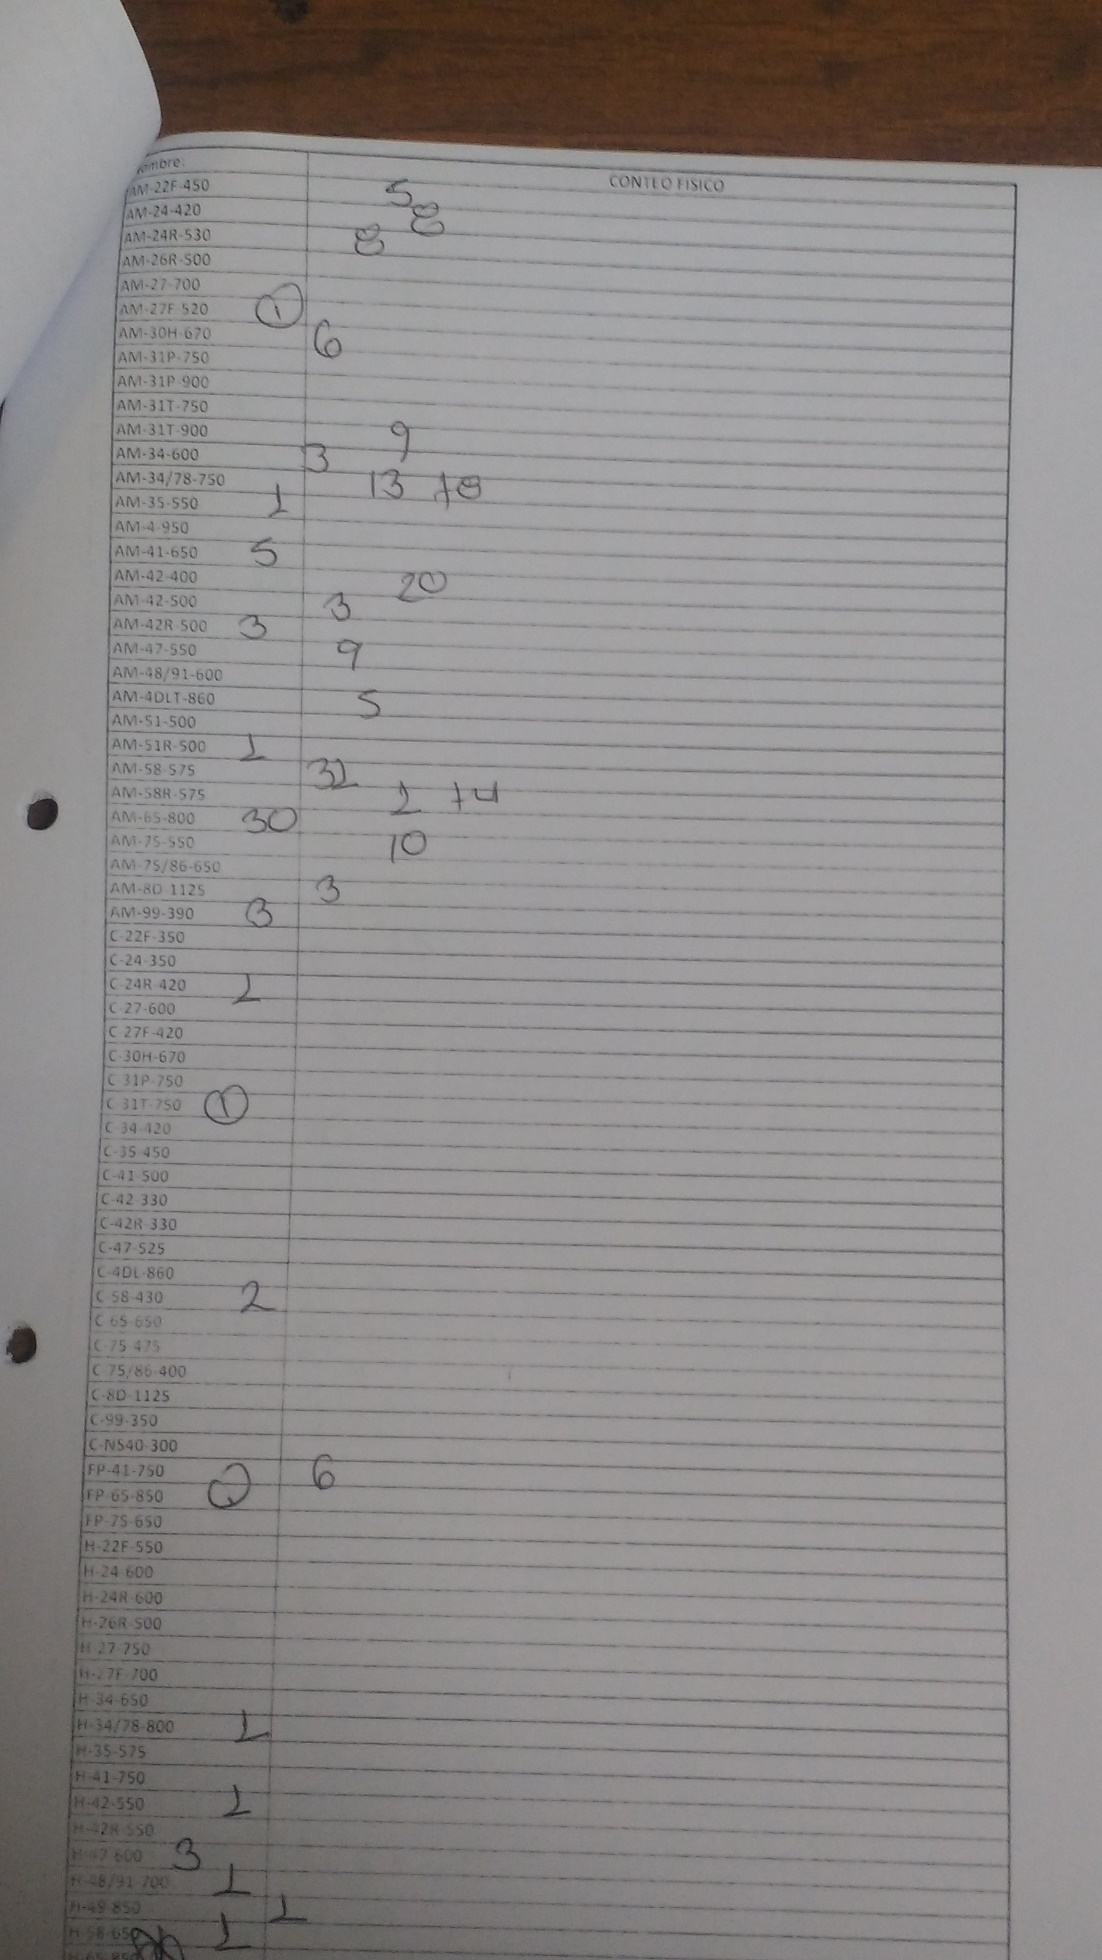 ombre: CONTEO FISICO
AM-22F-450 5
AM-24-420 8
AM-24R-530 8
AM-26R-500
AM-27-700
AM-27F-520 1
AM-30H-670 6
AM-31P-750
AM-31P-900
AM-31T-750
AM-31T-900 9
AM-34-600 3
AM-34/78-750 13 +8
AM-35-550 1
AM-4-950
AM-41-650 5
AM-42-400 20
AM-42-500 3
AM-42R-500 3
AM-47-550 9
AM-48/91-600
AM-4DLT-860 5
AM-51-500
AM-51R-500 1
AM-58-575 32
AM-58R-575 2 +4
AM-65-800 30
AM-75-550 10
AM-75/86-650
AM-8D-1125 3
AM-99-390 3
C-22F-350
C-24-350
C-24R-420 1
C-27-600
C-27F-420
C-30H-670
C-31P-750
C-31T-750 1
C-34-420
C-35-450
C-41-500
C-42-330
C-42R-330
C-47-525
C-4DL-860
C-58-430 2
C-65-650
C-75-475
C-75/86-400
C-8D-1125
C-99-350
C-NS40-300
FP-41-750 6
FP-65-850
FP-75-650
H-22F-550
H-24-600
H-24R-600
H-26R-500
H-27-750
H-27F-700
H-34-650
H-34/78-800 1
H-35-575
H-41-750
H-42-550 1
H-42R-550
H-47-600 3
H-48/91-700 1
H-49-850 1
H-58-650 1